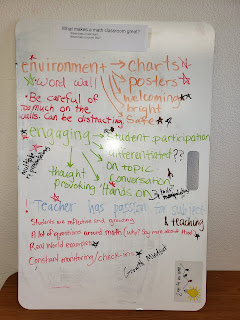 What makes a math classroom great?
environment → charts
word wall posters
welcoming
bright
safe
• Be careful of too much on the walls. Can be distracting.
engaging → Student participation
differentiated??
on topic
Conversation
multiple representations
thought provoking
Hands on
! Teacher has passion for subject
& teaching
Students are reflective and growing
A lot of questions around math
Real World examples
Constant monitoring/check-ins
Growth Mindset